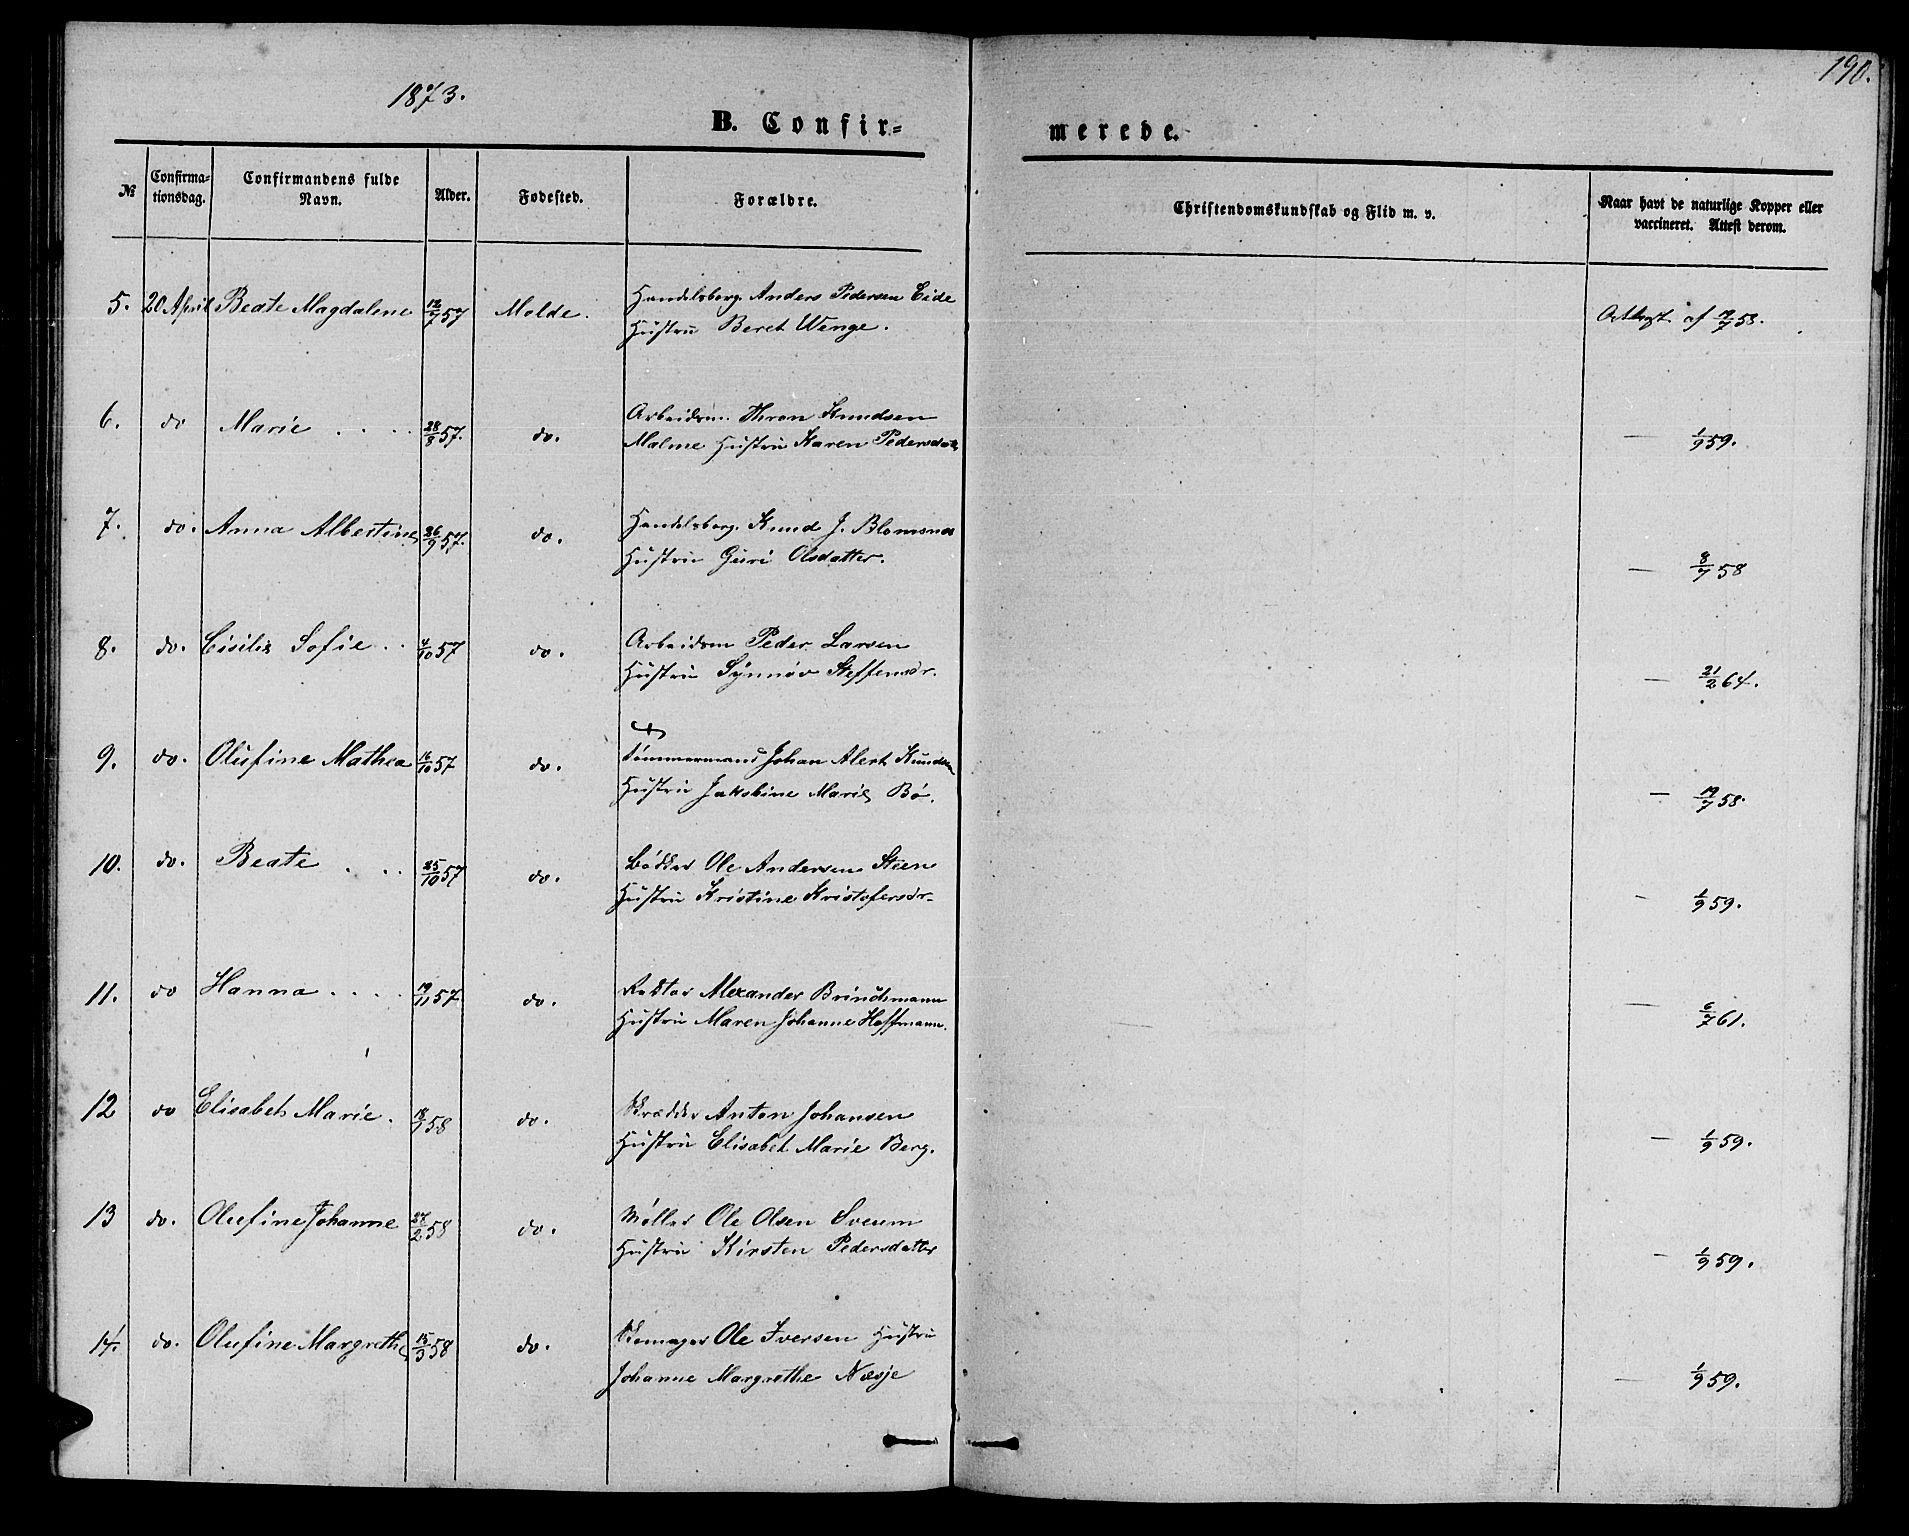 1873.
190.
B. Confir=
merede.
№
Confirma-
tionsdag.
Confirmandens fulde
Navn.
Alder.
Fødested.
Forældre.
Christendomskundskab og Flid m. v.
Naar havt de naturlige Kopper eller
vaccineret. Attest derom.
5. 20 April Beate Magdalene 12/7 57 Molde. Handelsborg. Anders Pedersen Eide
Hustru Beret Wenge. Attest. af 19/7 58.
6. do Marie 28/8 57. do. Arbeidsm. Thron Knudsen
Malme Hustru Karen Pedersdatt — 1/9 59.
7. do. Anna Albertine 26/9 57. do. Handelsborg. Knud J. Blomsnes
Hustru Guri Olsdatter. — 8/7 58
8. do. Cisilie Sofie 4/10 57 do. Arbeidsm Peder Larsen
Hustru Synnøv Steffensdr. — 21/2 64.
9. do. Olufine Mathea 16/10 57 do. Tømmermand Johan Alert Knudsen
Hustru Jakobine Marie Bø. — 19/7 58.
10. do. Beate 25/10 57 do. Bødker Ole Andersen Steen
Hustru Kristine Kristofersdr. — 1/9 59.
11. do Hanna 19/11 57 do. Rektor Alexander Brinchmann
Hustru Maren Johanne Hoffmann. — 6/7 61.
12 do Elisabet Marie. 58 do. Skrædder Anton Johansen
Hustru Elisabet Marie Berg. — 1/9 59.
13 do. Olufine Johanne 27/2 58 do. Møller Ole Olsen Sveum
Hustru Kirsten Pedersdatter — 1/9 59.
14. do. Olufine Margrethe 15/3 58 do. Skomager Ole Iversen Hustru
Johanne Margrethe Næsje — 1/9 59.